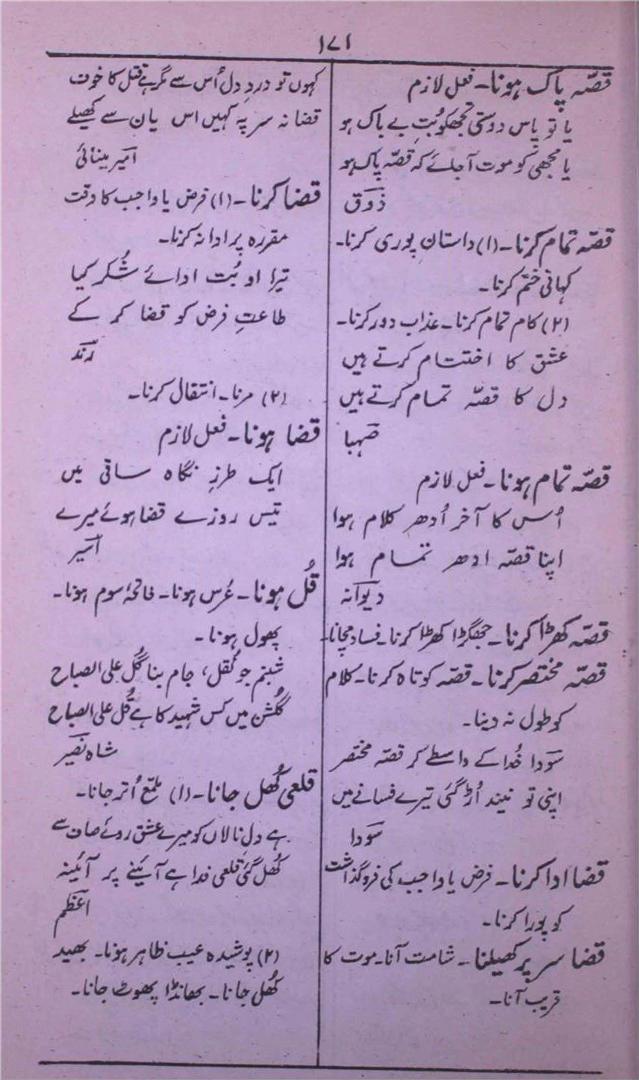 ۱۷۱
قصّہ پاک ہونا۔ فعل لازم
یا تو پاس دوستی تجھکو بُتِ بے باک ہو
یا مجھی کو موت آجائے کہ قصّہ پاک ہو
ذوق
قصّہ تمام کرنا۔ (۱) داستان پوری کرنا۔
کہانی ختم کرنا۔
(۲) کام تمام کرنا۔ عذاب دور کرنا۔
عشق کا اختتام کرتے ہیں
دل کا قصّہ تمام کرتے ہیں
صہبا
قصّہ تمام ہونا۔ فعل لازم
اُس کا آخر اُدھر کلام ہوا
اپنا قصّہ ادھر تمام ہوا
دیوانہ
قصّہ کھڑا کرنا۔ جھگڑا کھڑا کرنا۔ فساد مچانا۔
قصّہ مختصر کرنا۔ قصّہ کوتاہ کرنا۔ کلام
کو طول نہ دینا۔
سودا خُدا کے واسطے کر قصّہ مختصر
اپنی تو نیند اُڑ گئی تیرے فسانے میں
سودا
قضا ادا کرنا۔ فرض یا واجب کی فروگذاشت
کو پورا کرنا۔
قضا سر پر کھیلنا۔ شامت آنا۔ موت کا
قریب آنا۔
کہوں تو دردِ دل اُس سے گر ہے قتل کا خوف
قضا نہ سر پہ کہیں اس بیان سے کھیلے
امیر مینائی
قضا کرنا۔ (۱) فرض یا واجب کا وقت
مقررہ پر ادا نہ کرنا۔
تیرا او بُت ادائے شُکر کیا
طاعتِ فرض کو قضا کر کے
رند
(۲) مرنا۔ انتقال کرنا۔
قضا ہونا۔ فعل لازم
ایک طرزِ نگاہ ساقی میں
تیس روزے قضا ہوئے میرے
اسیر
قُل ہونا۔ عُرس ہونا۔ فاتحۂ سوم ہونا۔
پھول ہونا۔
شبنم جو نُقل، جام بنا گُل علی الصباح
گلشن میں کس شہید کا ہے قُل علی الصباح
شاہ نصیر
قلعی کُھل جانا۔ (۱) ملمّع اُتر جانا۔
ہے دلِ نالاں کو میرے عشق روئے صاف سے
کُھل گئی قلعی فدا ہے آئینے پر آئینہ
اعظم
(۲) پوشیدہ عیب ظاہر ہونا۔ بھید
کُھل جانا۔ بھانڈا پھوٹ جانا۔